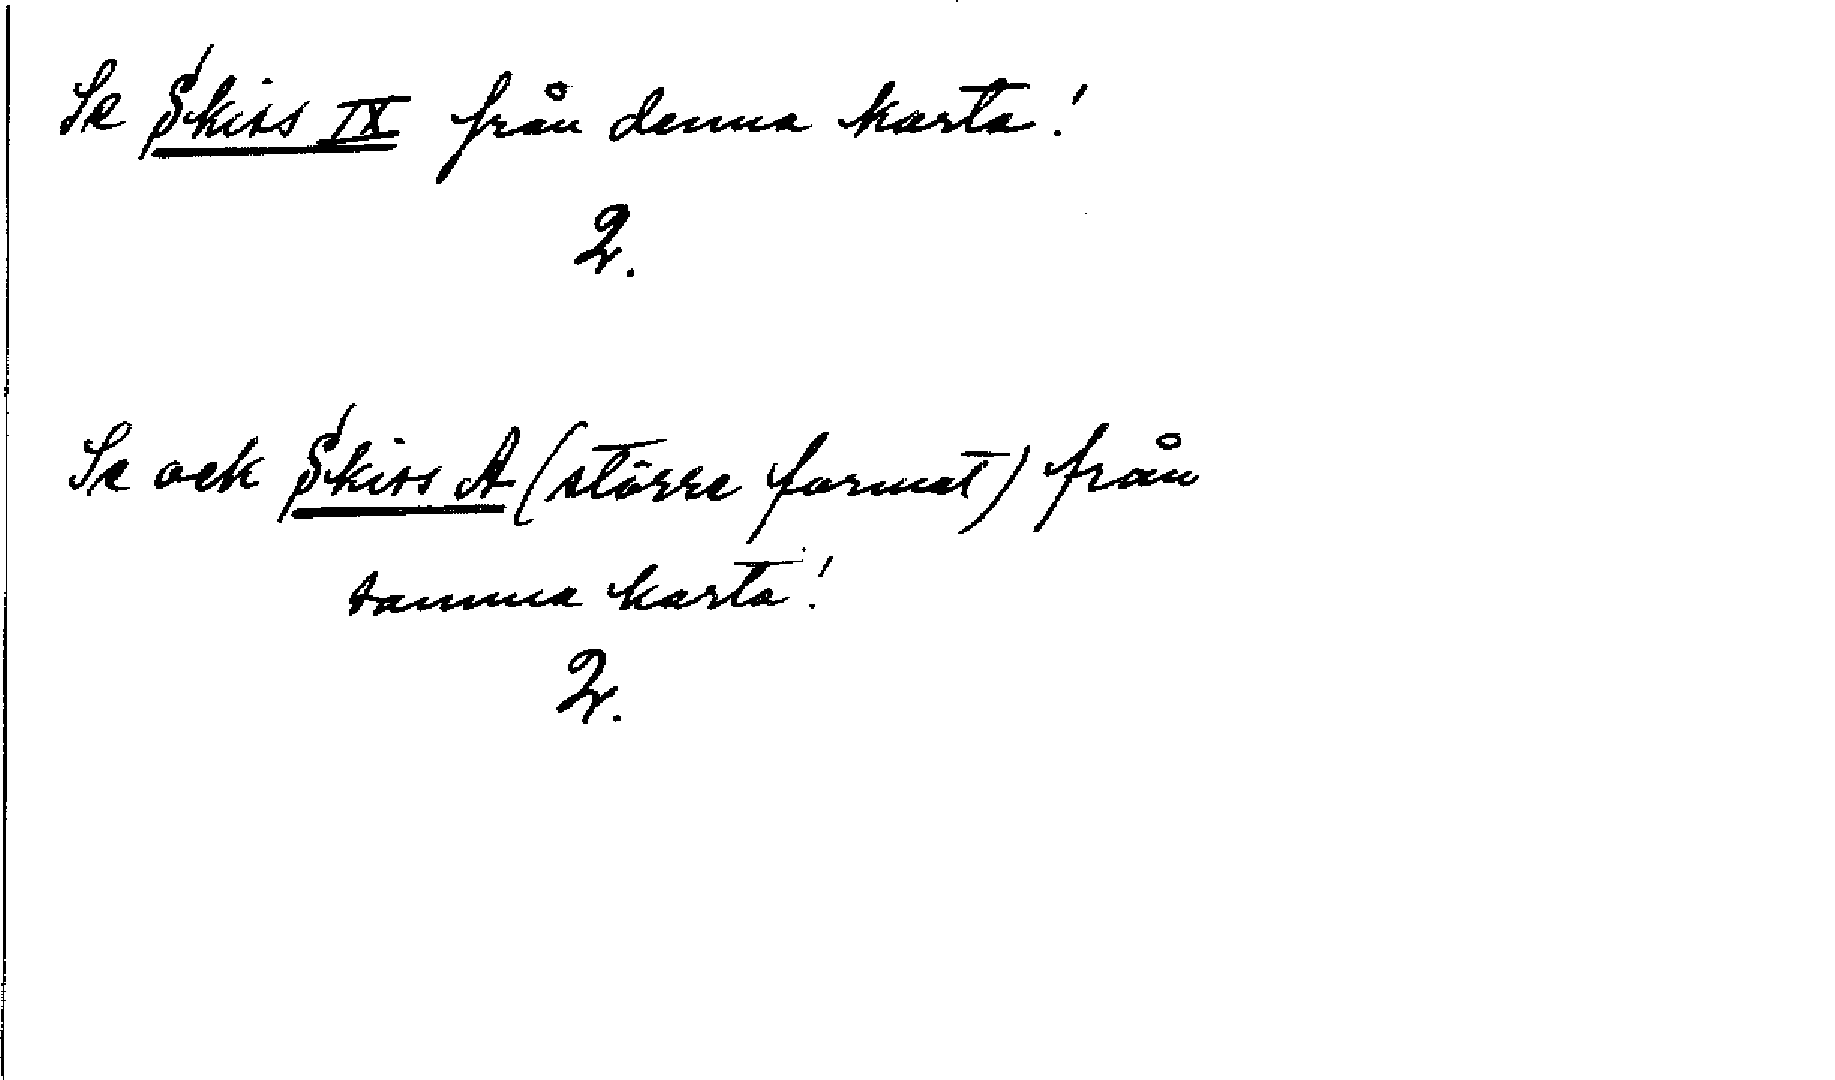 Se Skiss IX från denna karta!
2.
Se ock Skiss A (större format) från
samma karta!
2.